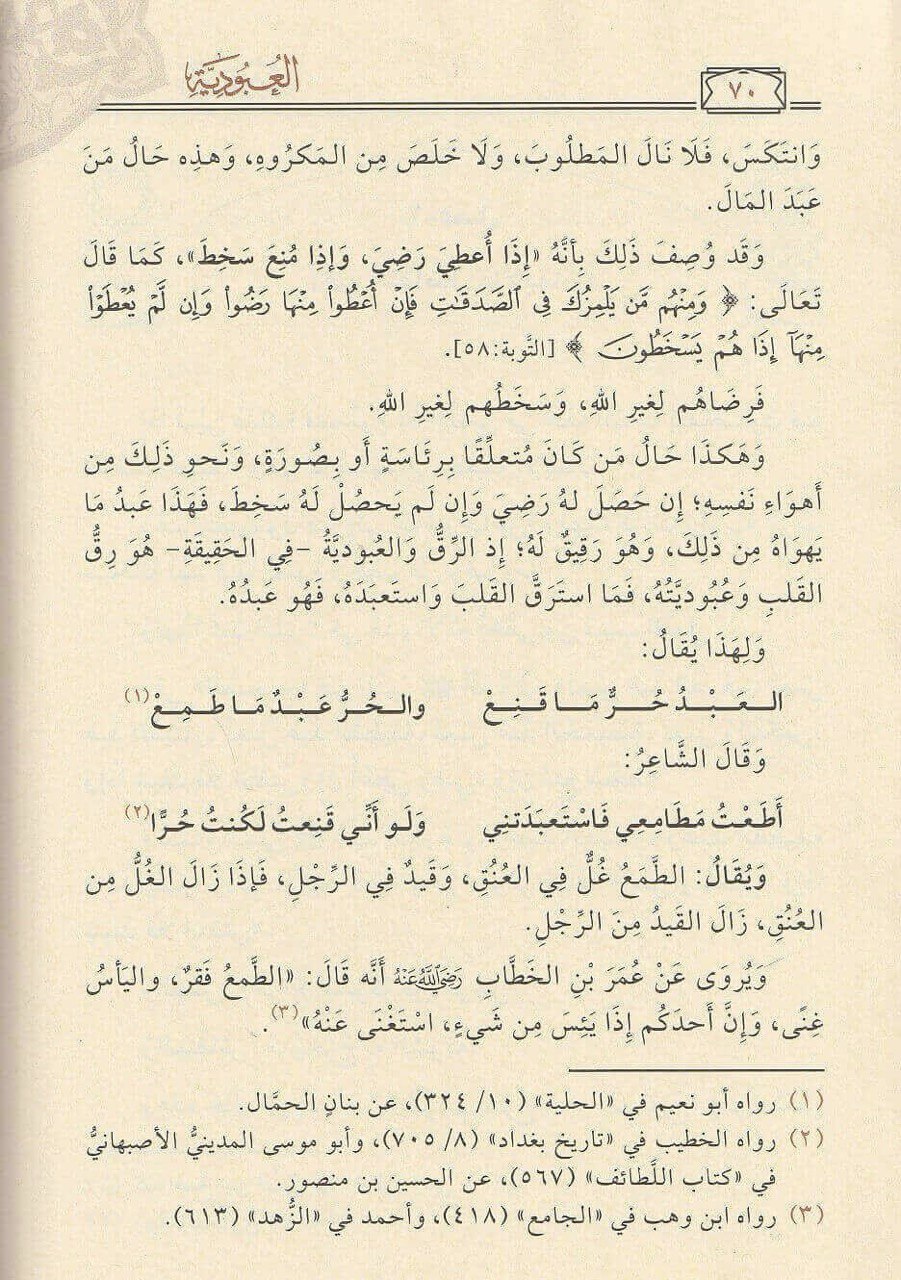 ٧٠
العُبُودِيَّةِ
وَانتَكَسَ، فَلَا نَالَ المَطلُوبَ، وَلَا خَلَصَ مِن المَكرُوهِ، وَهذِه حَالُ مَنَ
عَبَدَ المَالَ.
وَقَد وُصِفَ ذَلِكَ بِأنَّهُ «إِذَا أُعطِيَ رَضِيَ، وَإذا مُنِعَ سَخِطَ»، كَمَا قَالَ
تَعَالَى: ﴿ وَمِنْهُم مَّن يَلْمِزُكَ فِي ٱلصَّدَقَٰتِ فَإِنْ أُعْطُوا۟ مِنْهَا رَضُوا۟ وَإِن لَّمْ يُعْطَوْا۟
مِنْهَآ إِذَا هُمْ يَسْخَطُونَ ﴾ [التَّوبة:٥٨].
فَرِضَاهُم لِغيرِ اللهِ، وَسَخَطُهم لِغيرِ اللهِ.
وَهَكذَا حَالُ مَن كَانَ مُتعلِّقًا بِرِئَاسَةٍ أَو بِصُورَةٍ، وَنَحوِ ذَلِكَ مِن
أَهوَاءِ نَفسِهِ؛ إِن حَصَلَ لهُ رَضِيَ وَإِن لَم يَحصُلْ لَهُ سَخِطَ، فَهَذَا عَبدُ مَا
يَهوَاهُ مِن ذَلكَ، وَهُوَ رَقِيقٌ لَهُ؛ إِذ الرِّقُّ وَالعُبوديَّةُ -فِي الحَقِيقَةِ- هُوَ رِقُّ
القَلبِ وَعُبُوديَّتُهُ، فَمَا استَرَقَّ القَلبَ وَاستَعبَدَهُ، فَهُو عَبدُهُ.
وَلِهَذَا يُقَالُ:
العَبْدُ حُرٌّ مَا قَنِعْ والحُرُّ عَبْدٌ مَا طَمِعْ(١)
وَقَالَ الشَّاعِرُ:
أَطَعْتُ مَطَامِعِي فَاسْتَعبَدَتنِي وَلَو أَنِّي قَنِعتُ لَكُنتُ حُرًّا(٢)
وَيُقَالُ: الطَّمَعُ غُلٌّ فِي العُنُقِ، وَقَيدٌ فِي الرِّجْلِ، فَإذَا زَالَ الغُلُّ مِن
العُنُقِ، زَالَ القَيدُ مِنَ الرِّجْلِ.
وَيُروَى عَنْ عُمَرَ بْنِ الخَطَّابِ رَضِيَ اللَّهُ عَنْهُ أَنَّه قَالَ: «الطَّمعُ فَقرٌ، واليَأسُ
غِنًى، وَإِنَّ أَحدَكُم إِذَا يَئِسَ مِن شَيءٍ، اسْتَغْنَى عَنْهُ»(٣).
(١) رواه أبو نعيم في «الحلية» (١٠/ ٣٢٤)، عن بنانٍ الحمَّال.
(٢) رواه الخطيب في «تاريخ بغداد» (٨/ ٧٠٥)، وأبو موسى المدينيُّ الأصبهانيُّ
في «كتاب اللَّطائف» (٥٦٧)، عن الحسين بن منصور.
(٣) رواه ابن وهب في «الجامع» (٤١٨)، وأحمد في «الزُّهد» (٦١٣).